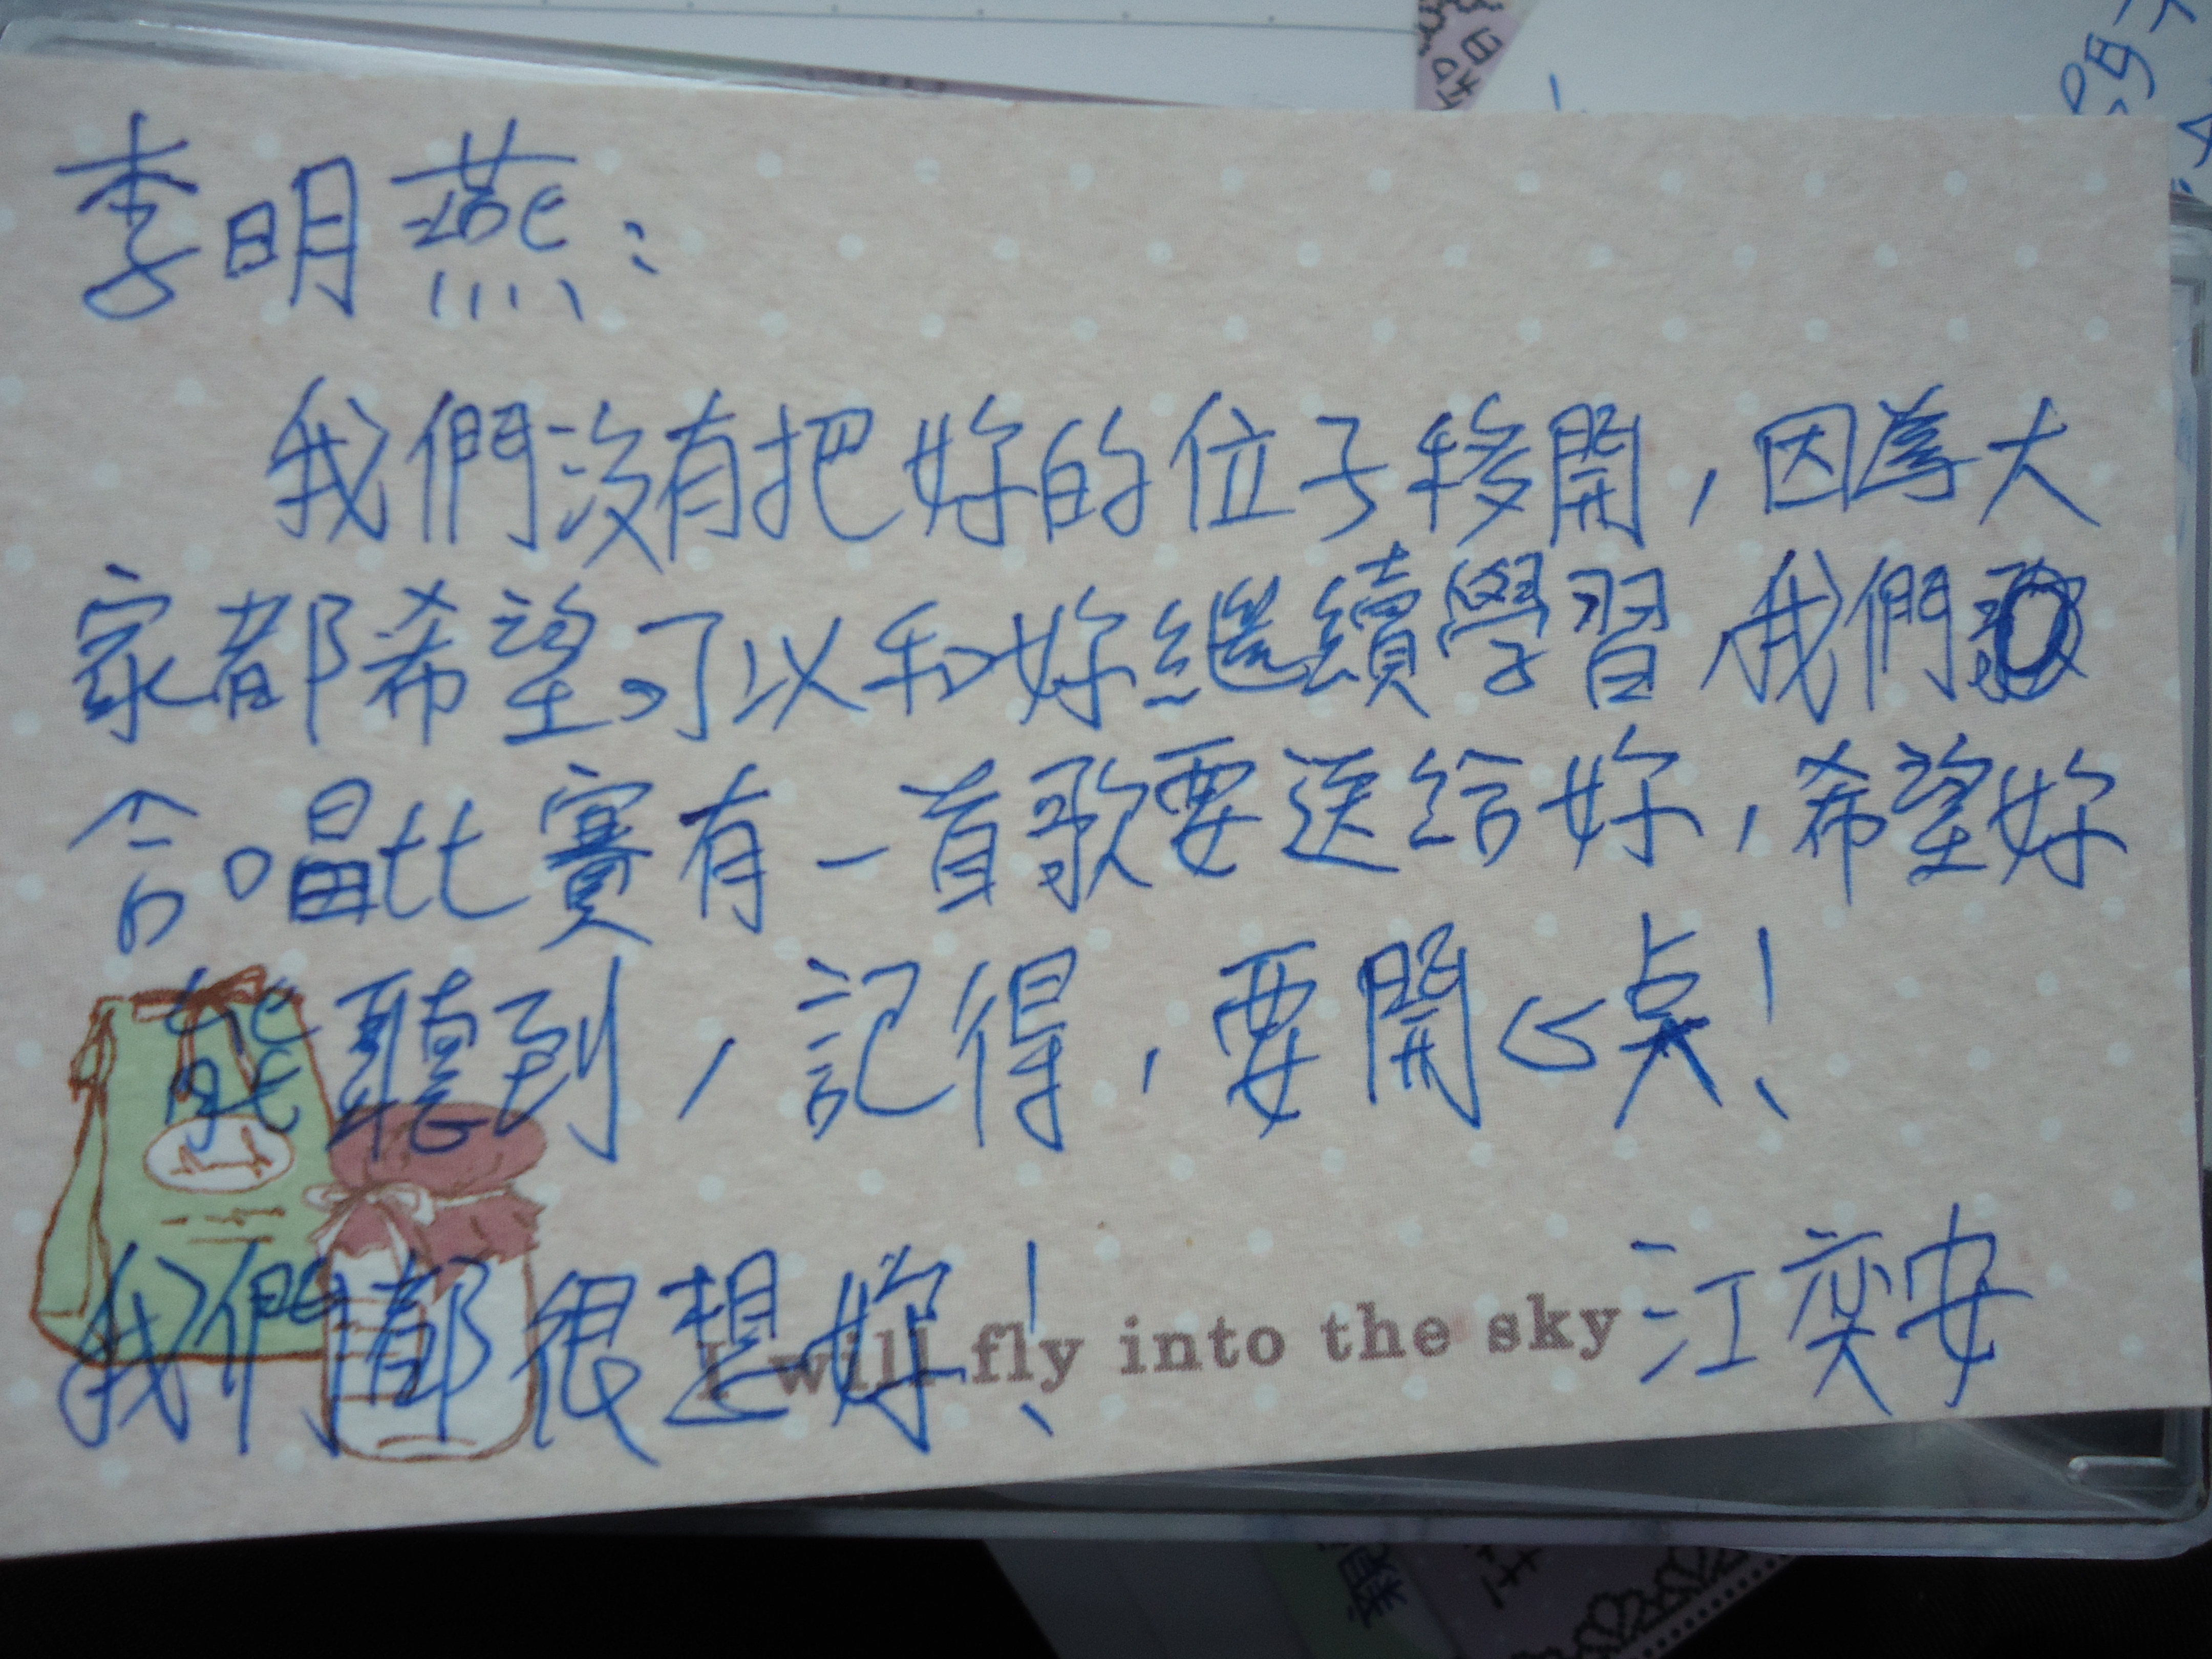 李明燕：
我們沒有把妳的位子移開，因為大
家都希望可以和妳繼續學習，我們
合唱比賽有一首歌要送給妳，希望妳
能聽到，記得，要開心点！
我們都很想妳！
I will fly into the sky
江奕安